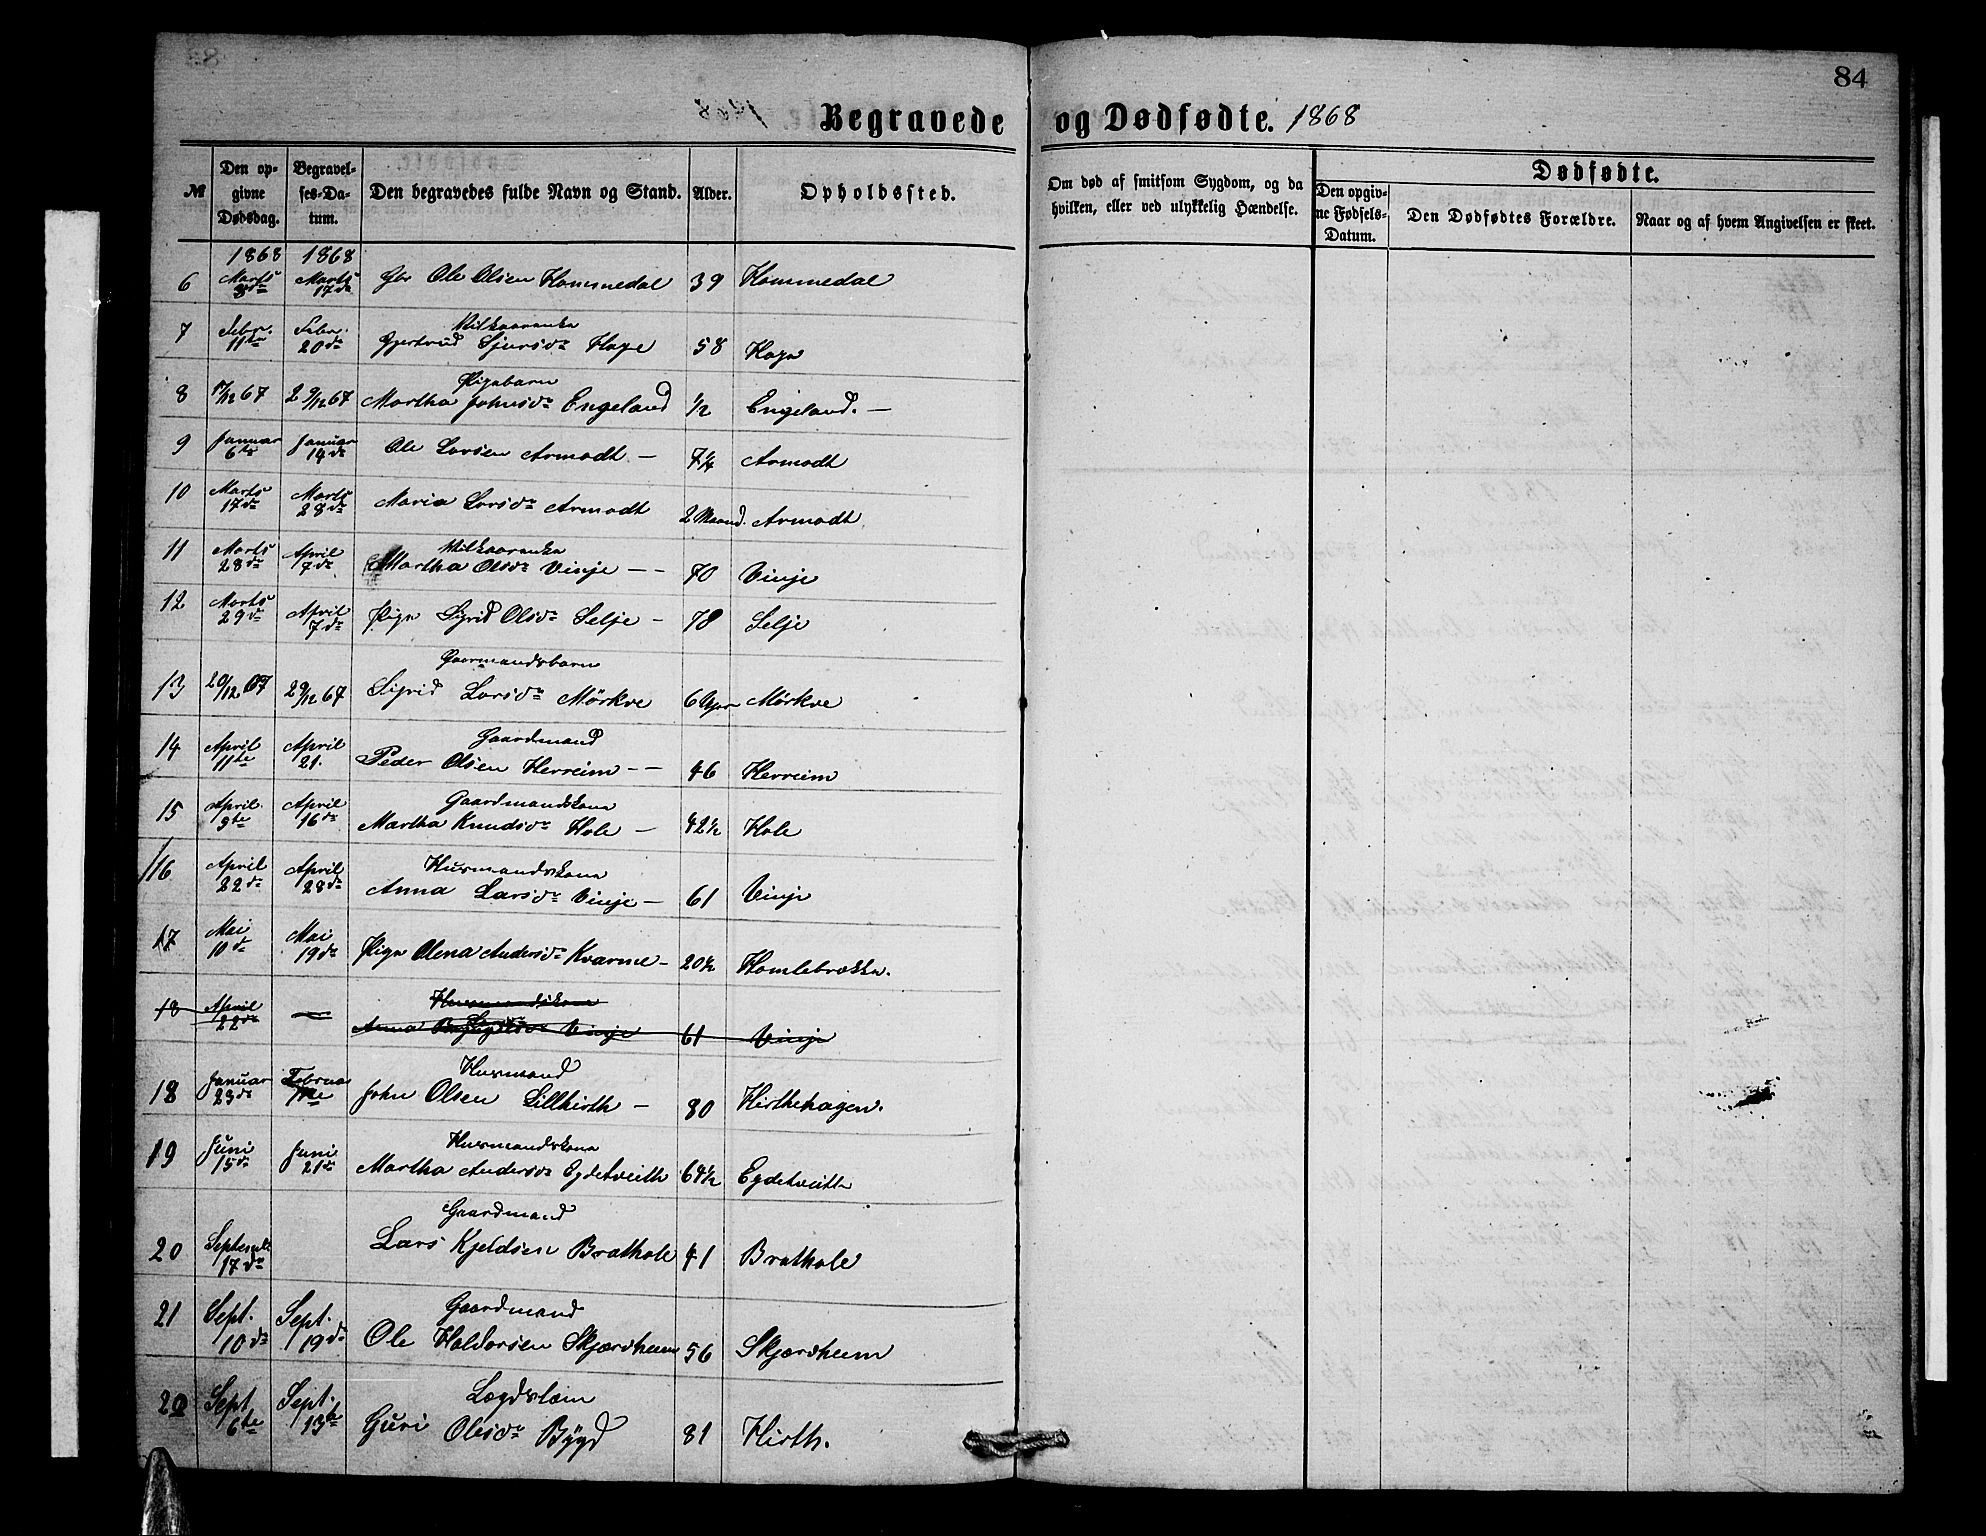 84
Begravede og Dødfødte. 1868
№ Den opgivne Dødsdag. Begravelses-Datum. Den begravedes fulde Navn og Stand. Alder. Opholdssted. Om død af smitsom Sygdom, og da hvilken, eller ved ulykkelig Hændelse. Dødfødte. Den opgivne Fødsels-Datum. Den Dødfødtes Forældre. Naar og af hvem Angivelsen er skeet.
1868 1868
6 Marts 3die Marts 17de Gbr Ole Olsen Hommedal 39 Hommedal
Vilkaarenke
7 Febr. 11te Febr. 20de Gjertrud Sjursdr Hage 58 Haga
Pigebarn
8 17/12 67 29/12 67 Martha Johnsdr Engeland 1/2 Engeland. —
9 Januar 6te Januar 14de Ole Larsen Armodt — 7 1/4 Armodt
10 Marts 17de Marts 28de Maria Larsdr Armodt 2 Maand. Armodt
Vilkaarenke
11 Marts 28de April 7de Martha Olsdr Vinje — — 70 Vinje
12 Marts 29de April 7de Pige Sigrid Olsdr Selje — 78 Selje
Gaarmandsbarn
13 20/12 67 29/12 67 Sigrid Larsdr Mørkve 6 Uger Mørkve
Gaardmand
14 April 11te April 21. Peder Olsen Herreim — — 46 Herreim
Gaardmandskone
15 April 9te April 16de Martha Knudsdr Hole — 42 1/2 Hole
Husmandskone
16 April 22de April 28de Anna Larsdr Vinje — 61 Vinje
17 Mai 10de Mai 19de Pige Olena Andersdr Kvarme — 20 1/2 Homlebrække.
Husmandskone
18 April 22de — Anna Vinje 61 Vinje
Husmand
18 Januar 23de Februar 1ste John Olsen Lillhirth — 80 Hirthehagen.
Husmandskone
19 Juni 15de Juni 21de Martha Andersdr Egdetveith 64 1/2 Egdetveith
Gaardmand
20 Septembr 17de Lars Kjeldsen Brathole 41 Brathole
Gaardmand
21 Sept. 10de Sept. 19de Ole Haldorsen Skjerdheim 56 Skjerdheim
Lægdslem
22 Sept. 6te Sept. 13de Guri Olsdr Bÿgd 81 Hirth.